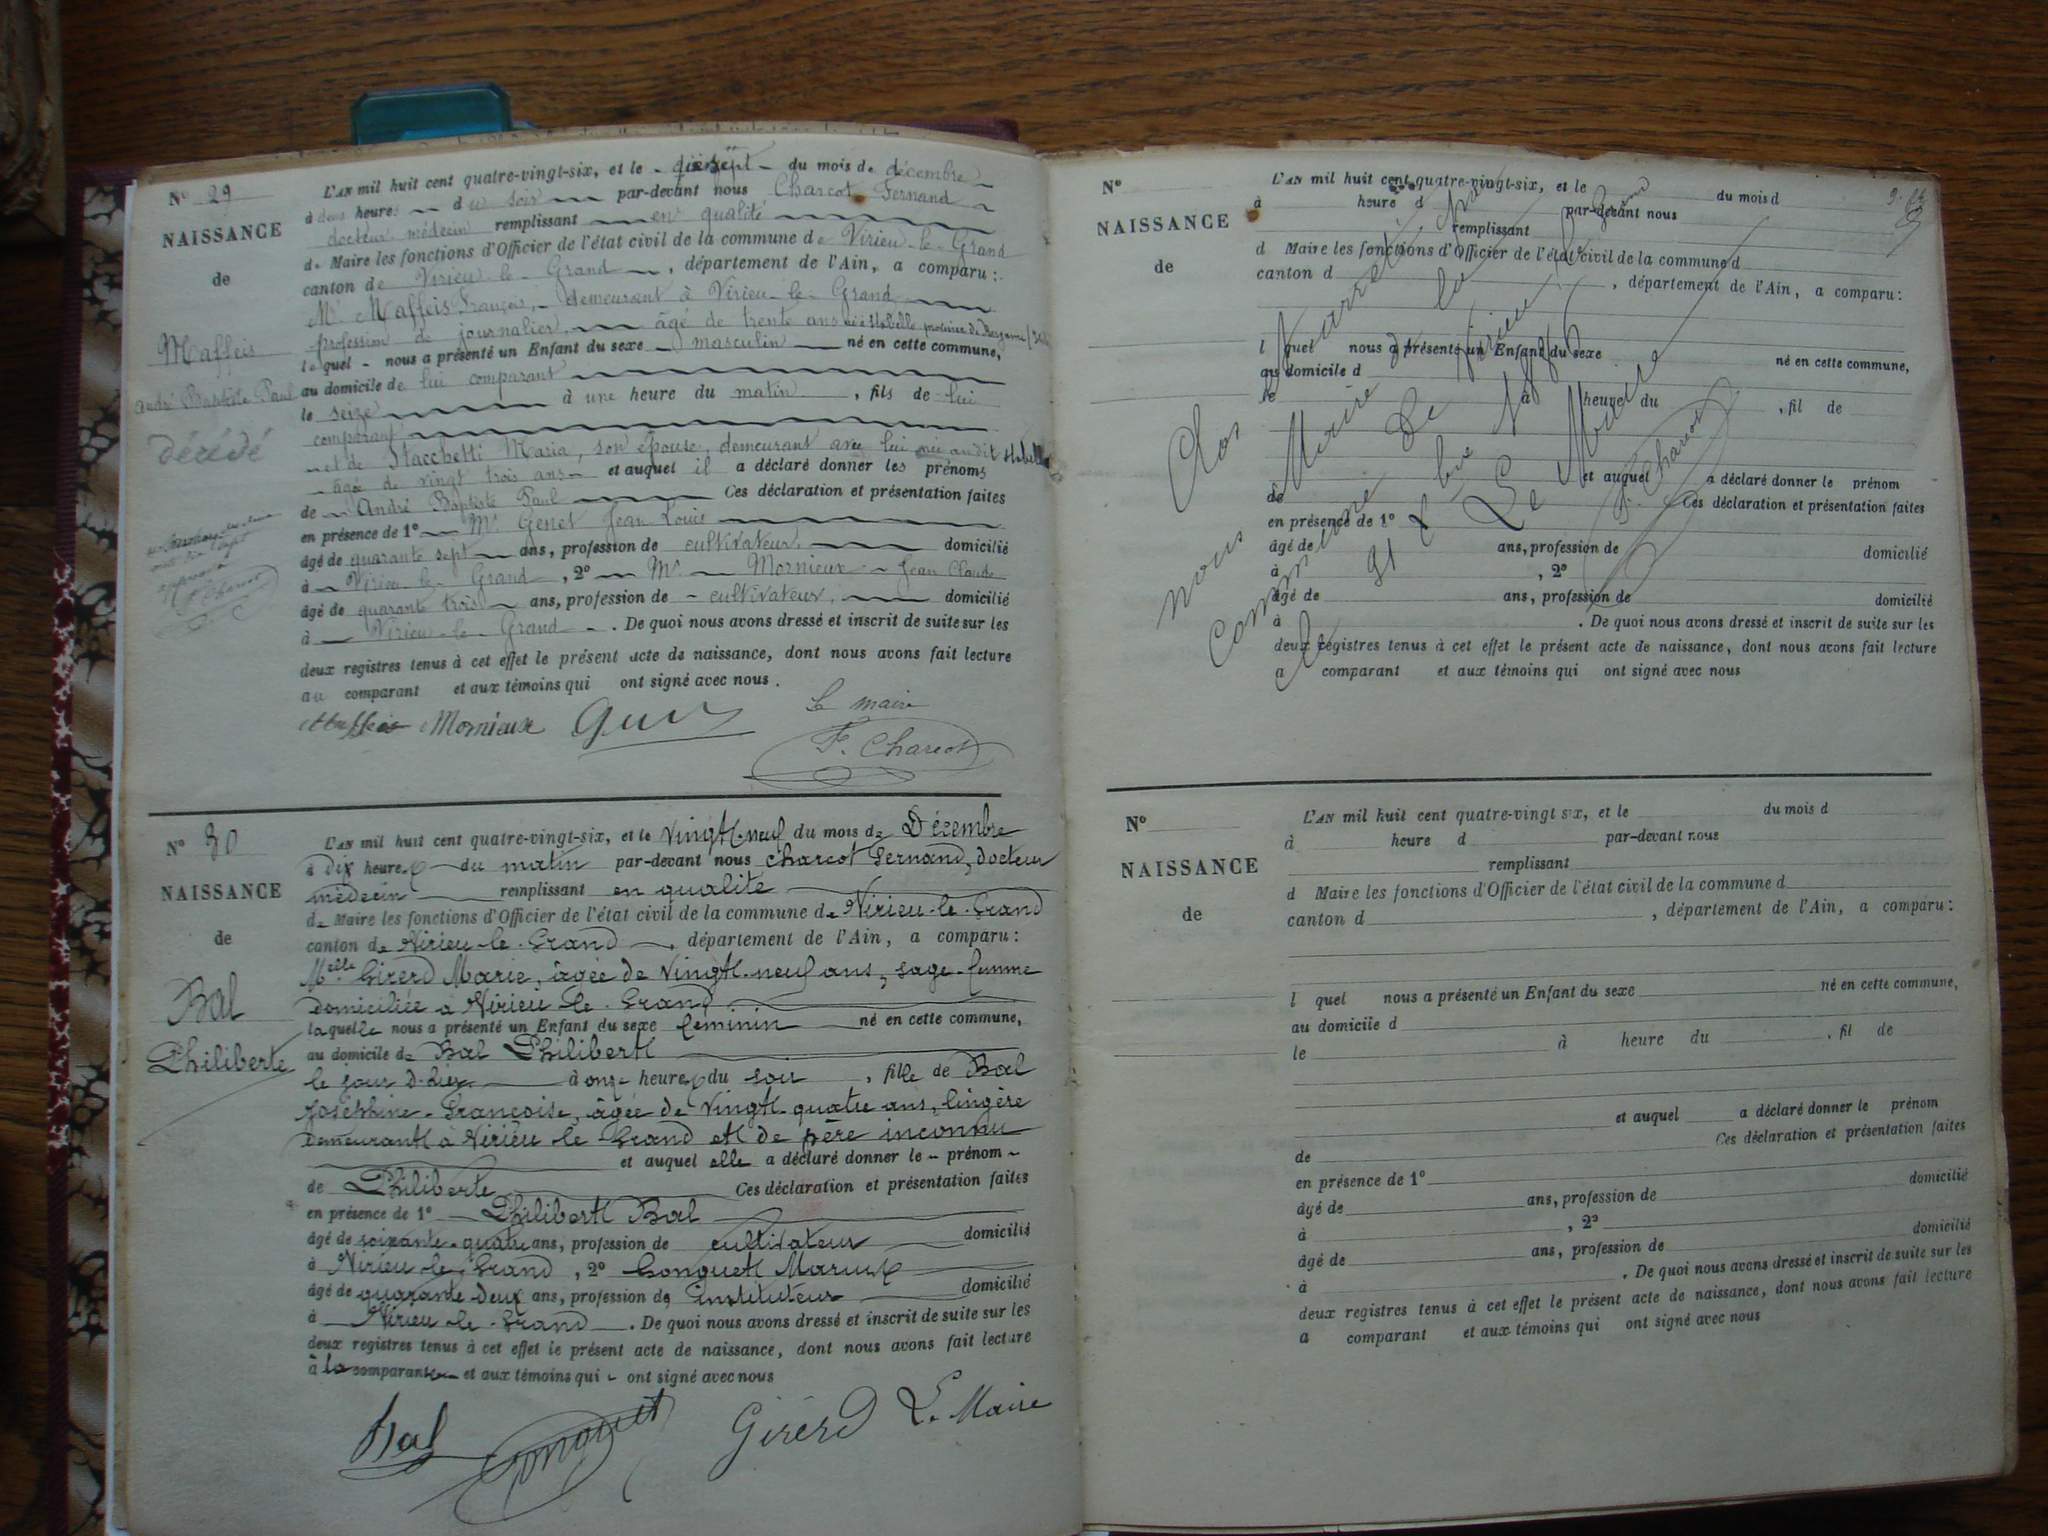 N° 29
NAISSANCE
de
Maffeis
André Baptiste Paul
décédé
L'AN mil huit cent quatre-vingt-six, et le dix sept du mois de décembre
à deux heures du soir par-devant nous Charcot Fernand
docteur médecin remplissant en qualité
de Maire les fonctions d'Officier de l'état civil de la commune de Virieu-le-Grand
canton de Virieu-le-Grand, département de l'Ain, a comparu:
Mr Maffeis François, demeurant à Virieu-le-Grand
profession de journalier, âgé de trente ans né à Stabello province de Bergame
lequel nous a présenté un Enfant du sexe masculin né en cette commune,
au domicile de lui comparant
le seize à une heure du matin, fils de lui
comparant
et de Stacchetti Maria, son épouse, demeurant avec lui née audit
âgée de vingt trois ans et auquel il a déclaré donner les prénoms
de André Baptiste Paul Ces déclaration et présentation faites
en présence de 1° Mr Genet Jean Louis
âgé de quarante sept ans, profession de cultivateur, domicilié
à Virieu-le-Grand, 2° Mr Mornieux Jean Claude
âgé de quarante trois ans, profession de cultivateur, domicilié
à Virieu-le-Grand. De quoi nous avons dressé et inscrit de suite sur les
deux registres tenus à cet effet le présent acte de naissance, dont nous avons fait lecture
au comparant et aux témoins qui ont signé avec nous.
Maffeis Mornieux
Le maire
F. Charcot
N° 30
NAISSANCE
de
Bal
Philiberte
L'AN mil huit cent quatre-vingt-six, et le vingt-neuf du mois de Décembre
à dix heures du matin par-devant nous Charcot Fernand, docteur
médecin remplissant en qualité
de Maire les fonctions d'Officier de l'état civil de la commune de Virieu-le-Grand
canton de Virieu-le-Grand, département de l'Ain, a comparu:
Melle Girerd Marie, âgée de vingt-neuf ans, sage-femme
domiciliée à Virieu-le-Grand
laquelle nous a présenté un Enfant du sexe féminin né en cette commune,
au domicile de Bal Philibert
le jour d'hier à onze heures du soir, fille de Bal
Joséphine-Françoise, âgée de vingt-quatre ans, lingère
demeurant à Virieu-le-Grand et de père inconnu
et auquel elle a déclaré donner le prénom
de Philiberte Ces déclaration et présentation faites
en présence de 1° Philibert Bal
âgé de soixante-quatre ans, profession de cultivateur domicilié
à Virieu-le-Grand, 2° Gonguet Marius
âgé de quarante deux ans, profession de instituteur domicilié
à Virieu-le-Grand. De quoi nous avons dressé et inscrit de suite sur les
deux registres tenus à cet effet le présent acte de naissance, dont nous avons fait lecture
à la comparante et aux témoins qui ont signé avec nous
Bal Girerd Le Maire
N°
NAISSANCE
de
L'AN mil huit cent quatre-vingt-six, et le du mois d
à heure d par-devant nous
remplissant
d Maire les fonctions d'Officier de l'état civil de la commune d
canton d , département de l'Ain, a comparu:
l quel nous a présenté un Enfant du sexe né en cette commune,
au domicile d
le à heure du , fil de
et auquel a déclaré donner le prénom
de Ces déclaration et présentation faites
en présence de 1°
âgé de ans, profession de domicilié
à , 2°
âgé de ans, profession de domicilié
à . De quoi nous avons dressé et inscrit de suite sur les
deux registres tenus à cet effet le présent acte de naissance, dont nous avons fait lecture
a comparant et aux témoins qui ont signé avec nous
Clos
nous Maire de la
commune
Le Maire
F. Charcot
N°
NAISSANCE
de
L'AN mil huit cent quatre-vingt six, et le du mois d
à heure d par-devant nous
remplissant
d Maire les fonctions d'Officier de l'état civil de la commune d
canton d , département de l'Ain, a comparu:
l quel nous a présenté un Enfant du sexe né en cette commune,
au domicile d
le à heure du , fil de
et auquel a déclaré donner le prénom
de Ces déclaration et présentation faites
en présence de 1°
âgé de ans, profession de domicilié
à , 2°
âgé de ans, profession de domicilié
à . De quoi nous avons dressé et inscrit de suite sur les
deux registres tenus à cet effet le présent acte de naissance, dont nous avons fait lecture
a comparant et aux témoins qui ont signé avec nous